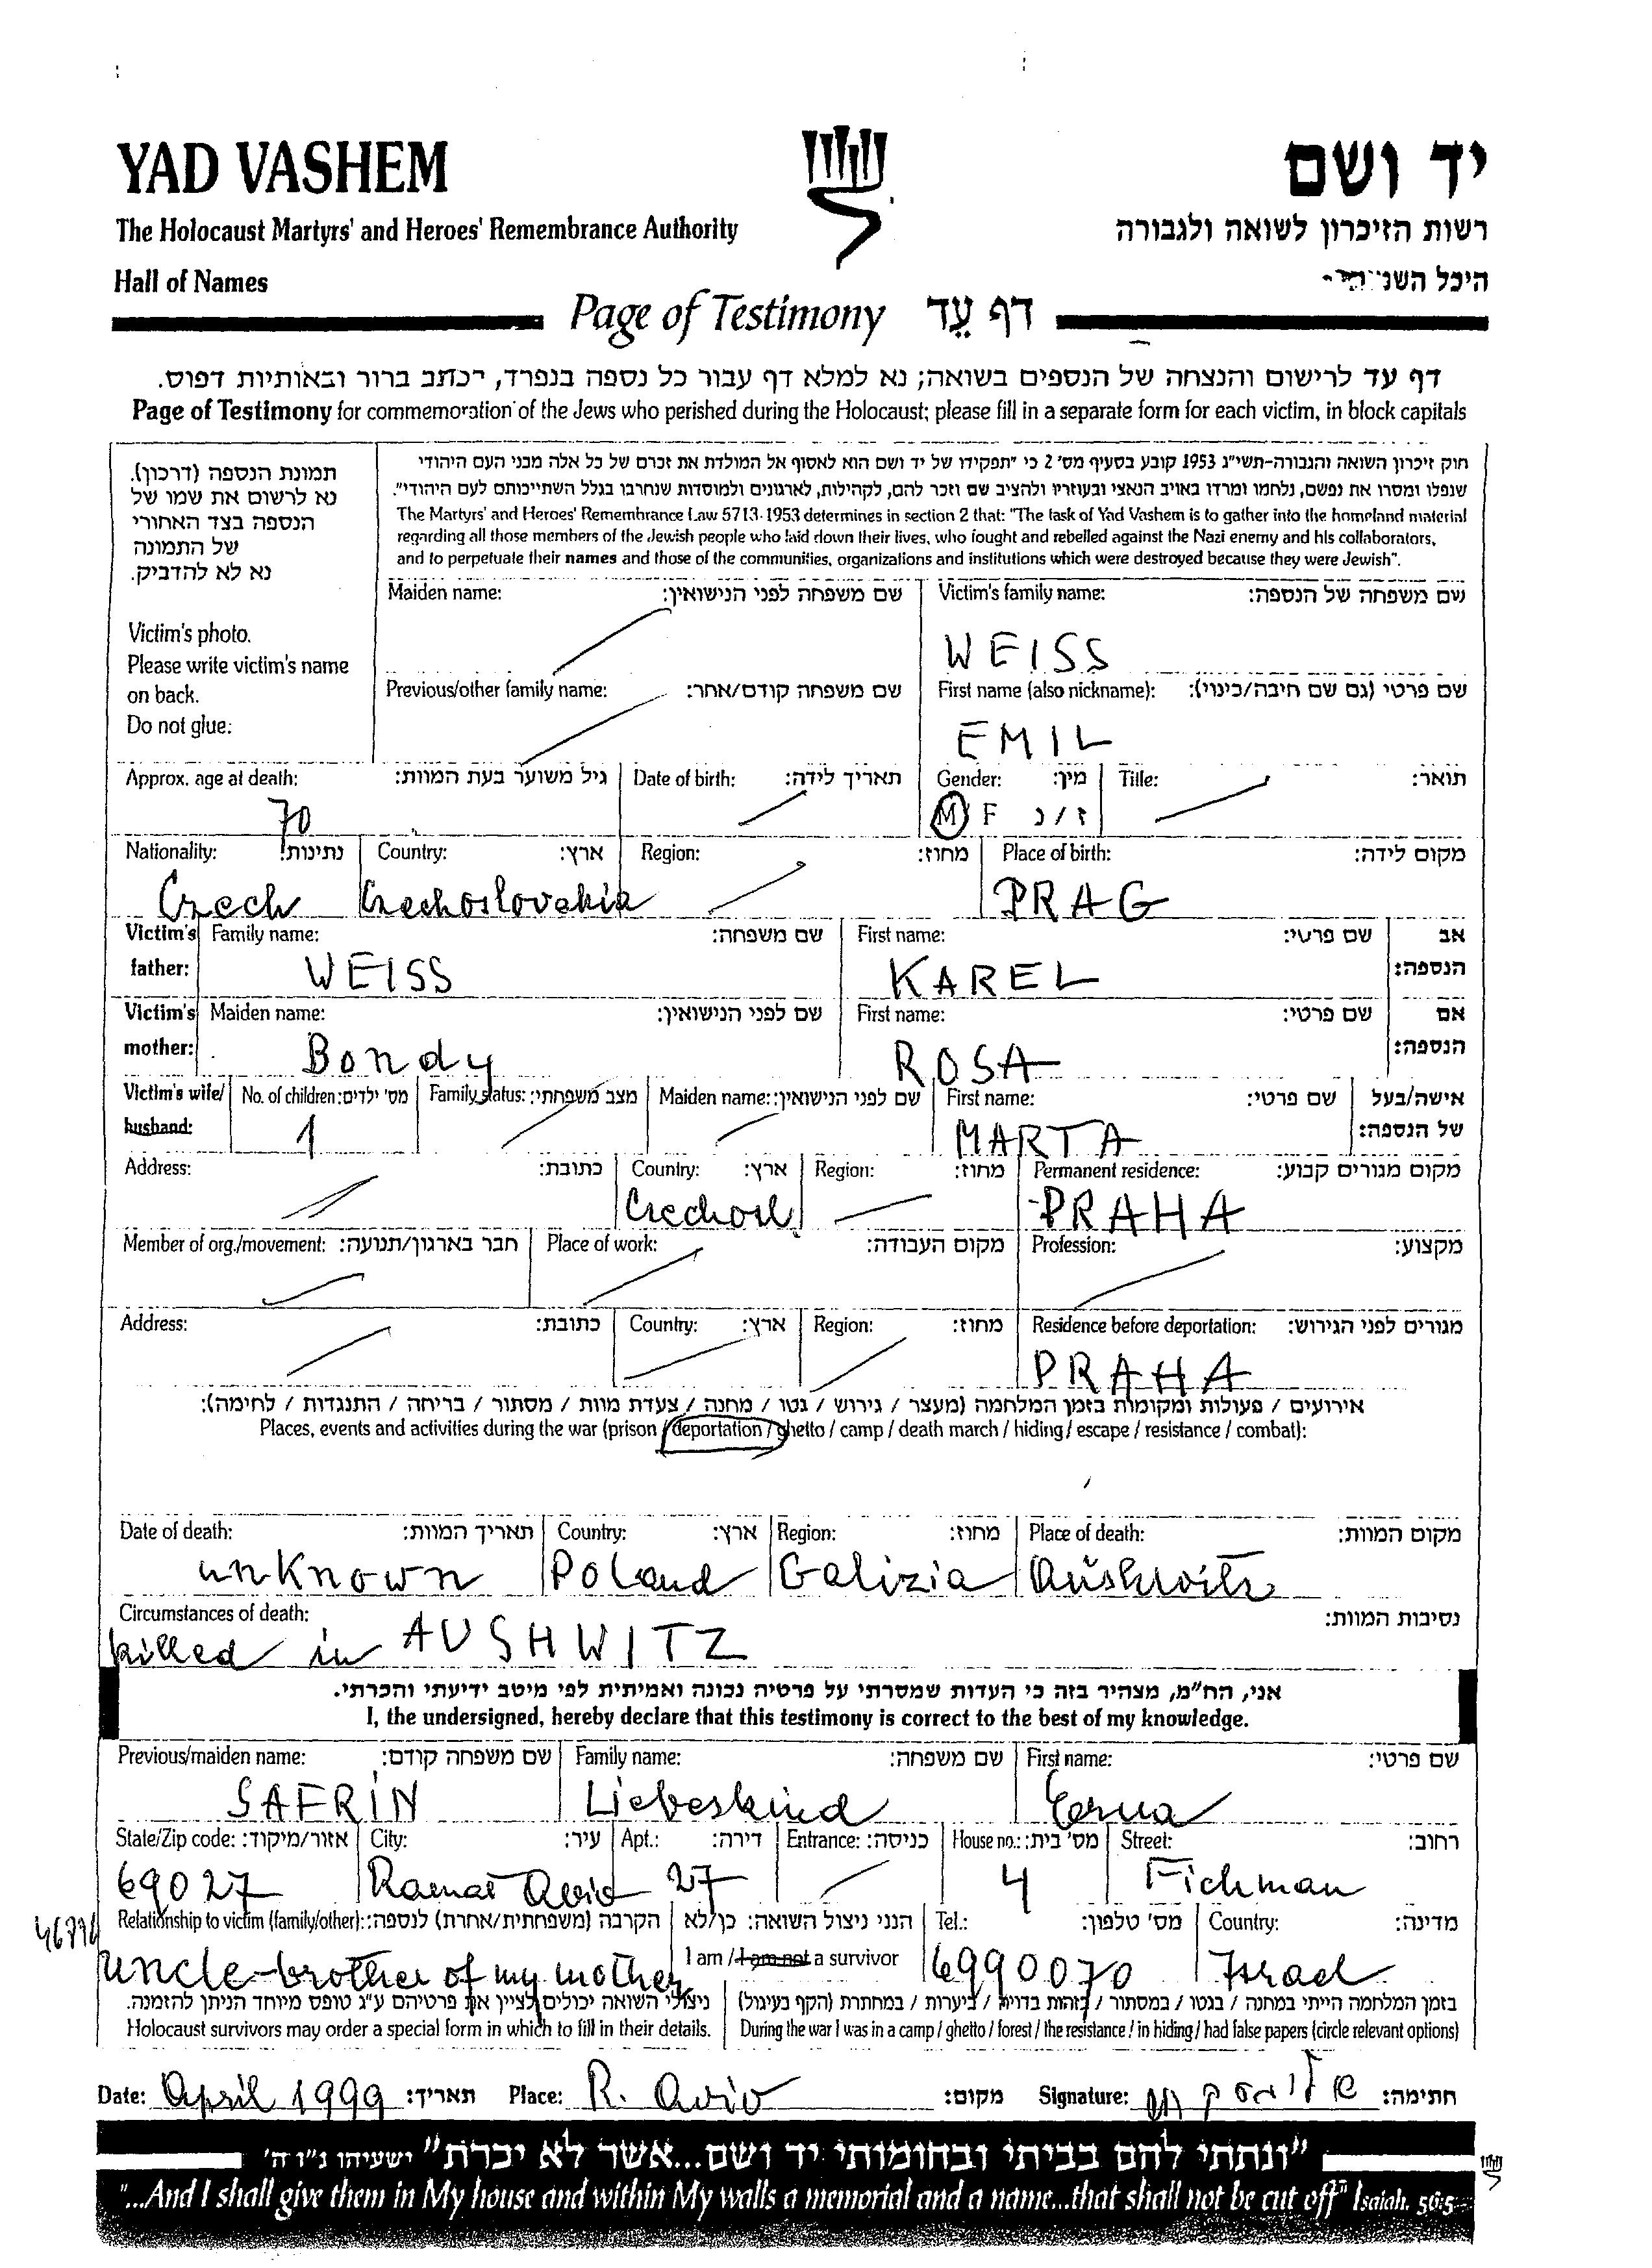 YAD VASHEM
יד ושם
The Holocaust Martyrs' and Heroes' Remembrance Authority
רשות הזיכרון לשואה ולגבורה
Hall of Names
היכל
Page of Testimony דף עֵד
דף עד לרישום והנצחה של הנספים בשואה; נא למלא דף עבור כל נספה בנפרד, בכתב ברור ובאותיות דפוס.
Page of Testimony for commemoration of the Jews who perished during the Holocaust; please fill in a separate form for each victim, in block capitals
תמונת הנספה (דרכון).
נא לרשום את שמו של
הנספה בצד האחורי
של התמונה
נא לא להדביק.
Victim's photo.
Please write victim's name
on back.
Do not glue.
חוק זיכרון השואה והגבורה-תשי"ג 1953 קובע בסעיף מס' 2 כי "תפקידו של יד ושם הוא לאסוף אל המולדת את זכרם של כל אלה מבני העם היהודי
שנפלו ומסרו את נפשם, נלחמו ומרדו באויב הנאצי ובעוזריו ולהציב שם וזכר להם, לקהילות, לארגונים ולמוסדות שנחרבו בגלל השתייכותם לעם היהודי".
The Martyrs' and Heroes' Remembrance Law 5713-1953 determines in section 2 that: "The task of Yad Vashem is to gather into the homeland material
regarding all those members of the Jewish people who laid down their lives, who fought and rebelled against the Nazi enemy and his collaborators,
and to perpetuate their names and those of the communities, organizations and institutions which were destroyed because they were Jewish".
Maiden name: שם משפחה לפני הנישואין: Victim's family name: שם משפחה של הנספה:
WEISS
Previous/other family name: שם משפחה קודם/אחר: First name (also nickname): שם פרטי (גם שם חיבה/כינוי):
EMIL
Approx. age at death: גיל משוער בעת המוות: Date of birth: תאריך לידה: Gender: מין: Title: תואר:
70 M F ז/נ
Nationality: נתינות: Country: ארץ: Region: מחוז: Place of birth: מקום לידה:
Czech Czechoslovakia PRAG
Victim's father: Family name: שם משפחה: First name: שם פרטי: אב הנספה:
WEISS KAREL
Victim's mother: Maiden name: שם לפני הנישואין: First name: שם פרטי: אם הנספה:
Bondy ROSA
Victim's wife/ husband: No. of children: מס' ילדים: Family status: מצב משפחתי: Maiden name: שם לפני הנישואין: First name: שם פרטי: אישה/בעל של הנספה:
1 MARTA
Address: כתובת: Country: ארץ: Region: מחוז: Permanent residence: מקום מגורים קבוע:
Czechosl PRAHA
Member of org./movement: חבר בארגון/תנועה: Place of work: מקום העבודה: Profession: מקצוע:
Address: כתובת: Country: ארץ: Region: מחוז: Residence before deportation: מגורים לפני הגירוש:
PRAHA
אירועים / פעולות ומקומות בזמן המלחמה (מעצר / גירוש / גטו / מחנה / צעדת מוות / מסתור / בריחה / התנגדות / לחימה):
Places, events and activities during the war (prison / deportation / ghetto / camp / death march / hiding / escape / resistance / combat):
Date of death: תאריך המוות: Country: ארץ: Region: מחוז: Place of death: מקום המוות:
unknown Poland Galizia Aušhwitz
Circumstances of death: נסיבות המוות:
killed in AUSHWITZ
אני, הח"מ, מצהיר בזה כי העדות שמסרתי על פרטיה נכונה ואמיתית לפי מיטב ידיעתי והכרתי.
I, the undersigned, hereby declare that this testimony is correct to the best of my knowledge.
Previous/maiden name: שם משפחה קודם: Family name: שם משפחה: First name: שם פרטי:
SAFRIN Liebeskind Erna
State/Zip code: אזור/מיקוד: City: עיר: Apt.: דירה: Entrance: כניסה: House no.: מס' בית: Street: רחוב:
69027 Ramat Aviv 27 4 Fichman
Relationship to victim (family/other): הקרבה (משפחתית/אחרת) לנספה: הנני ניצול השואה: כן/לא Tel.: מס' טלפון: Country: מדינה:
uncle-brother of my mother I am / I am not a survivor 6990070 Israel
ניצולי השואה יכולים לציין את פרטיהם ע"ג טופס מיוחד הניתן להזמנה.
בזמן המלחמה הייתי במחנה / בגטו / במסתור / בזהות בדויה / ביערות / במחתרת (הקף בעיגול)
Holocaust survivors may order a special form in which to fill in their details.
During the war I was in a camp / ghetto / forest / the resistance / in hiding / had false papers (circle relevant options)
Date: April 1999 תאריך: Place: R. Aviv מקום: Signature: חתימה:
"ונתתי להם בביתי ובחומותי יד ושם...אשר לא יכרת" ישעיהו נ"ו ה'
"...And I shall give them in My house and within My walls a memorial and a name...that shall not be cut off" Isaiah, 56:5